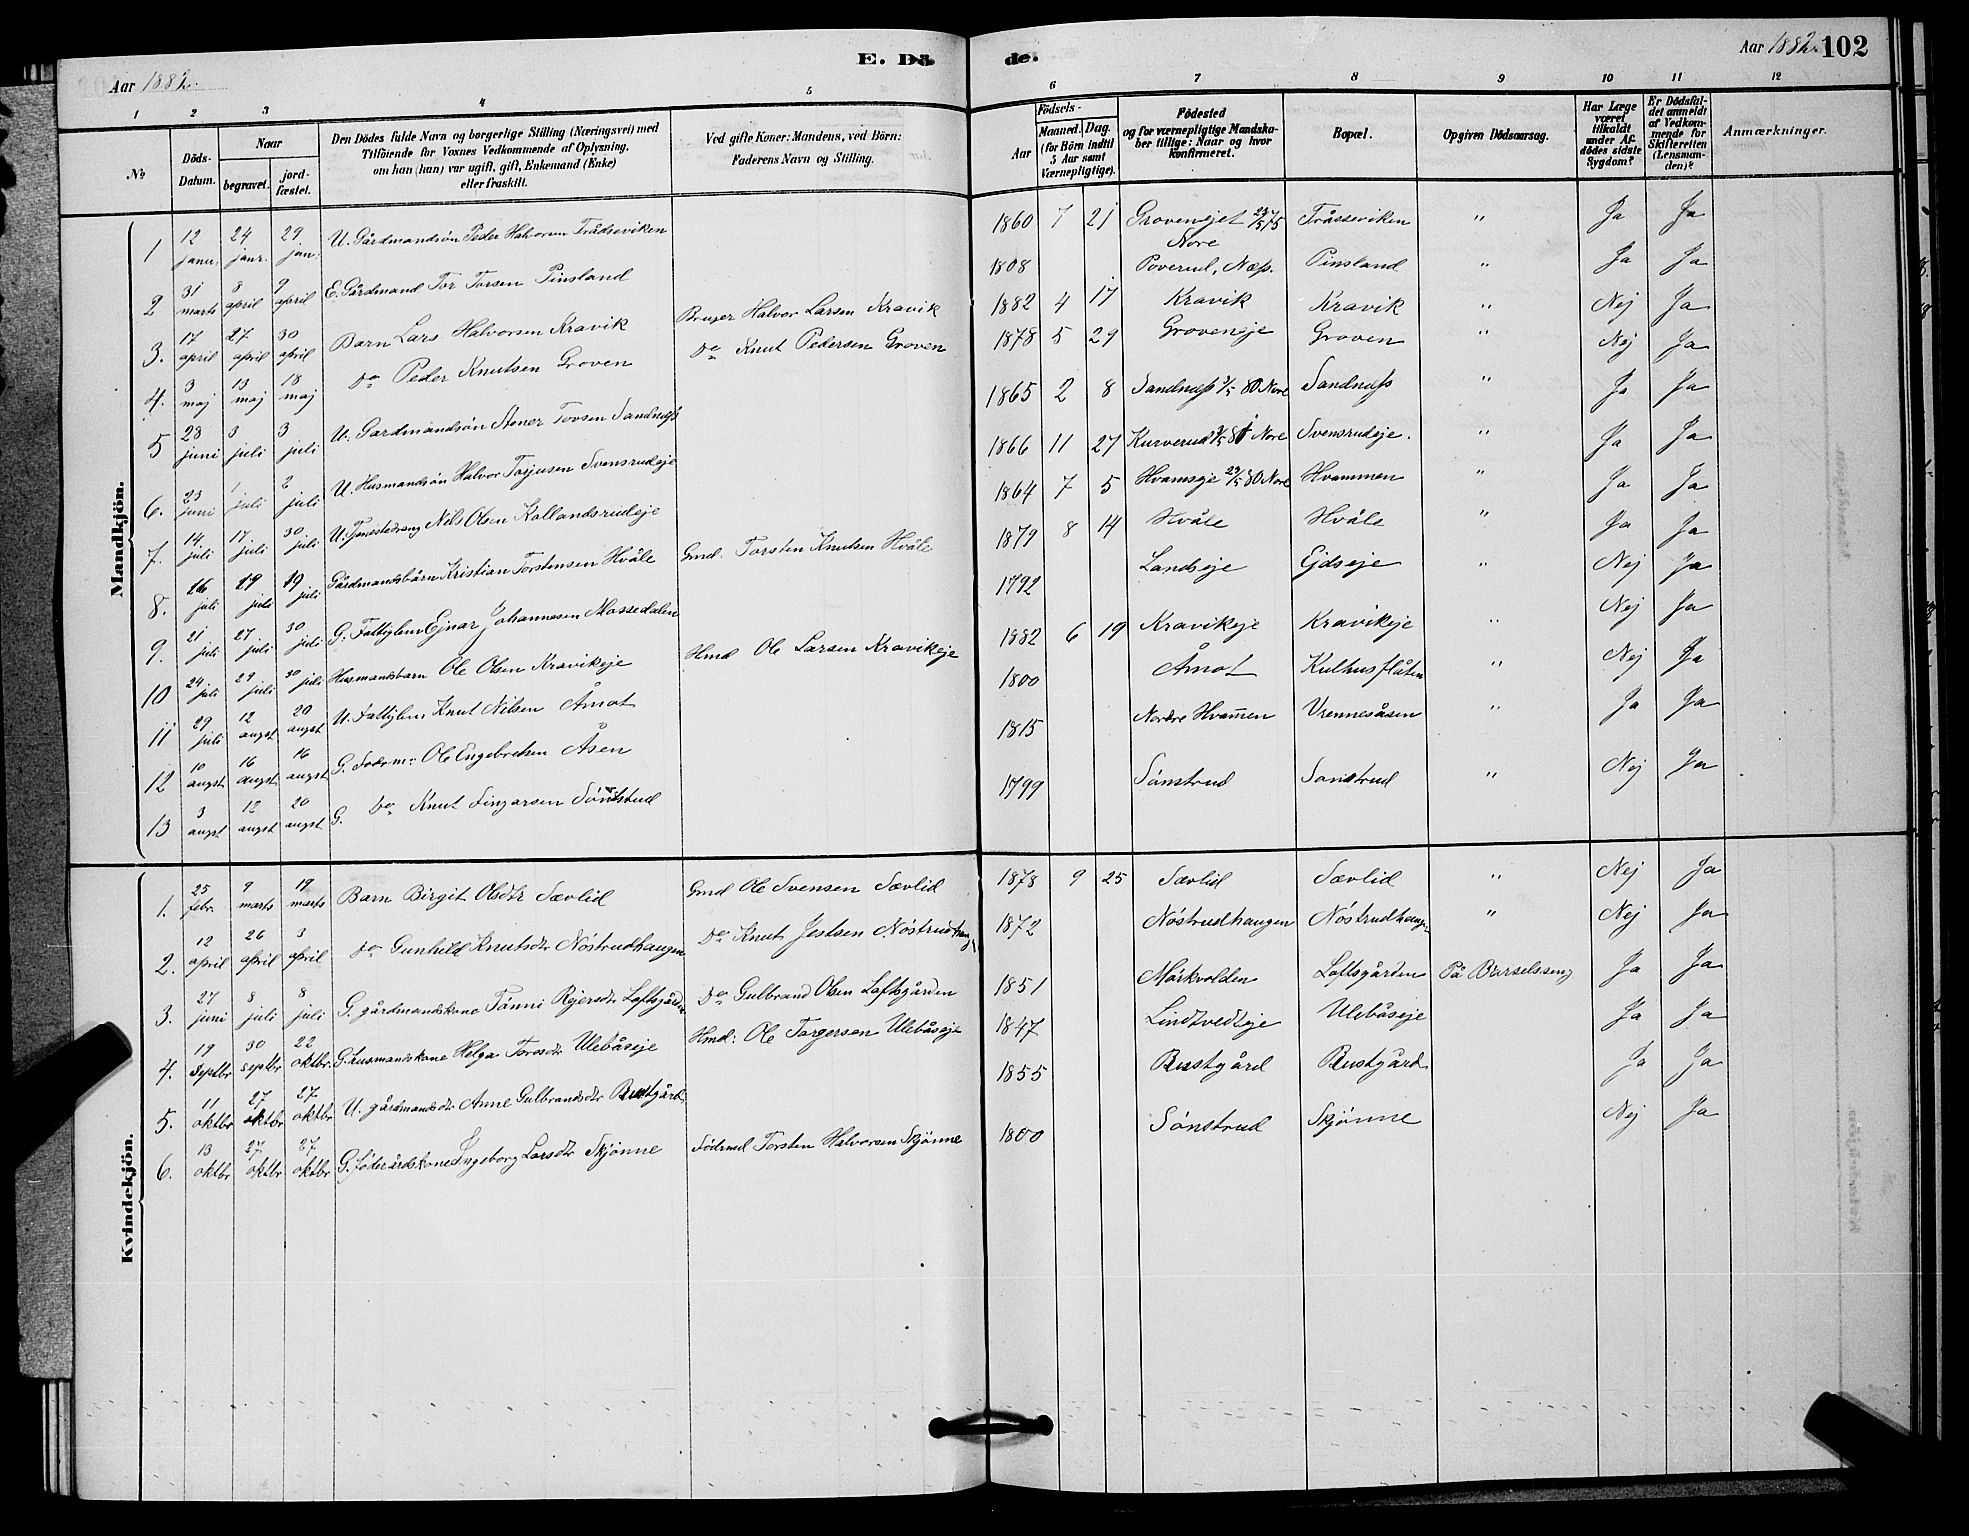 E. Dö de.
Aar 1882.
Aar 1882. 102
1 2 3 4 5 6 7 8 9 10 11 12
No
Döds-Datum.
Naar
begravet.
jord-fæstet.
Den Dödes fulde Navn og borgerlige Stilling (Næringsvei) med
Tilföiende for Voxnes Vedkommende af Oplysning,
om han (hun) var ugift, gift, Enkemand (Enke)
eller fraskilt.
Ved gifte Koner: Mandens, ved Börn:
Faderens Navn og Stilling.
Födsels-
Aar
Maaned. Dag.
(for Börn indtil
5 Aar samt
Værnepligtige).
Födested
og for værnepligtige Mandska-
ber tillige: Naar og hvor
konfirmeret.
Bopæl.
Opgiven Dödsaarsag.
Har Læge
været
tilkaldt
under Af-
dödes sidste
Sygdom?
Er Dödsfal-
det anmeldt
af Vedkom-
mende for
Skifteretten
(Lensman-
den)?
Anmærkninger.
Mandkjön.
1 12 janu. 24 janr. 29 jan. U. Gårdmandsön Peder Halvorsen Trådseviken 1860 7 21 Grovenejet 23/5 75 Nore Tråsseviken " Ja Ja
2 31 marts 8 april 9 april E. Gårdmand Tor Torsen Pinsland 1808 Poverud, Næs. Pinsland " Ja Ja
3. 17 april 27 april 30 april Barn Lars Halvorsen Kravik Bruger Halvor Larsen Kravik 1882 4 17 Kravik Kravik " Nej Ja
4. 3 maj 13 maj 18 maj Do Peder Knutsen Groven Do Knut Pedersen Groven 1878 5 29 Groveneje Groven " Nej Ja
5 28 juni 3 juli 3 juli U. Gardmandsön Stener Torsen Sandnæss 1865 2 8 Sandnæss /5 80 Nore Sandnæss " Ja Ja
6. 23 juni 1 juli 2 juli U. Husmandsön Halvor Torjusen Svensrudeje 1866 11 27 Kurverud /5 81 Nore Svensrudeje. " Ja Ja
7. 14 juli 17 juli 30 juli U. Tjenestedreng Nils Olsen Kollandsrudeje 1864 7 5 Hvamseje 29/5 80 Nore Hvammen " Ja Ja
8. 16 juli 19 juli 19 juli Gårdmandsbårn Kristian Torstensen Hvåle Gmd. Torsten Knutsen Hvåle 1879 8 14 Hvåle Hvåle " Ja Ja
9. 21 juli 27 juli 30 juli G. Fattiglem Ejnar Johannesen Mossedalen 1792 Landseje Ejdseje " Nej Ja
10 24 juli 29 juli 30 juli Husmandsbarn Ole Olsen Kravikeje Hmd Ole Larsen Kravikeje 1882 6 19 Kravikeje Kravikeje " Nej Ja
11 29 juli 12 augst 20 augst U. Fattiglem Knut Nilsen Åmot 1800 Åmot Kulhusflåten " Nej Ja
12 10 augst 16 augst 16 augst G. Föderm: Ole Engebretsen Åsen 1815 Nordre Hvammen Vrennesåsen " Ja Ja
13 3 augst 12 augst 20 augst G. Do Knut Fingarsen Sönstrud 1799 Sönstrud Sonstrud " Nej Ja
Kvindekjön.
1. 25 febr. 9 marts 19 marts Barn Birgit Olsdtr Sævlid Gmd Ole Svensen Sævlid 1878 9 25 Sævlid Sævlid " Nej Ja
2. 12 april 26 april 3 april Do Gunhild Knutsdtr Nöstrudhaugen Do Knut Jestsen Nöstrudhaug 1872 Nöstrudhaugen Nöstrudhaugen " Nej Ja
3. 27 juni 8 juli 8 juli G. gårdmandskone Tönni Rejersdtr Loftsgården Do Gulbrand Olsen Loftsgården 1851 Mörkvolden Loftsgården På Barselseng Ja Ja
4. 19 septbr 30 septbr 22 oktbr. G. husmandskone Helga Torosdtr Ulebåseje Hmd: Ole Torgersen Ulebåseje 1847 Lindtvedteje Ulebåseje Ja Ja
5. 11 oktbr 27 oktbr 27 oktbr U. gårdmandsdtr Anne Gulbrandsdtr Rustgård 1855 Rustgård Rustgård Ja Ja
6. 13 oktbr 27 oktbr 27 oktbr G. föderådskone Ingeborg Larsdtr Skjönne Födrmd Torsten Halvorsen Skjönne 1800 Sönstrud Skjönne Nej Ja